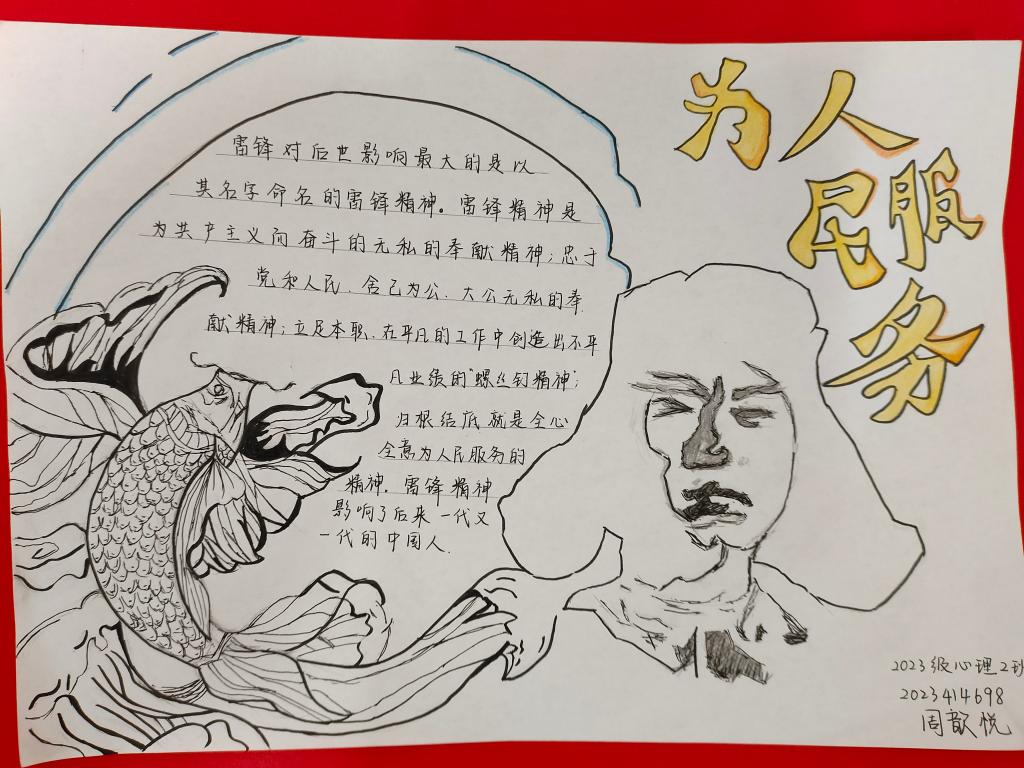 为人
民服
务
雷锋对后世影响最大的是以
其名字命名的雷锋精神。雷锋精神是
为共产主义而奋斗的无私的奉献精神；忠于
党和人民、舍己为公、大公无私的奉
献精神；立足本职、在平凡的工作中创造出不平
凡业绩的“螺丝钉精神”；
归根结底就是全心
全意为人民服务的
精神。雷锋精神
影响了后来一代又
一代的中国人.
2023级心理2班
2023414698
周歆悦